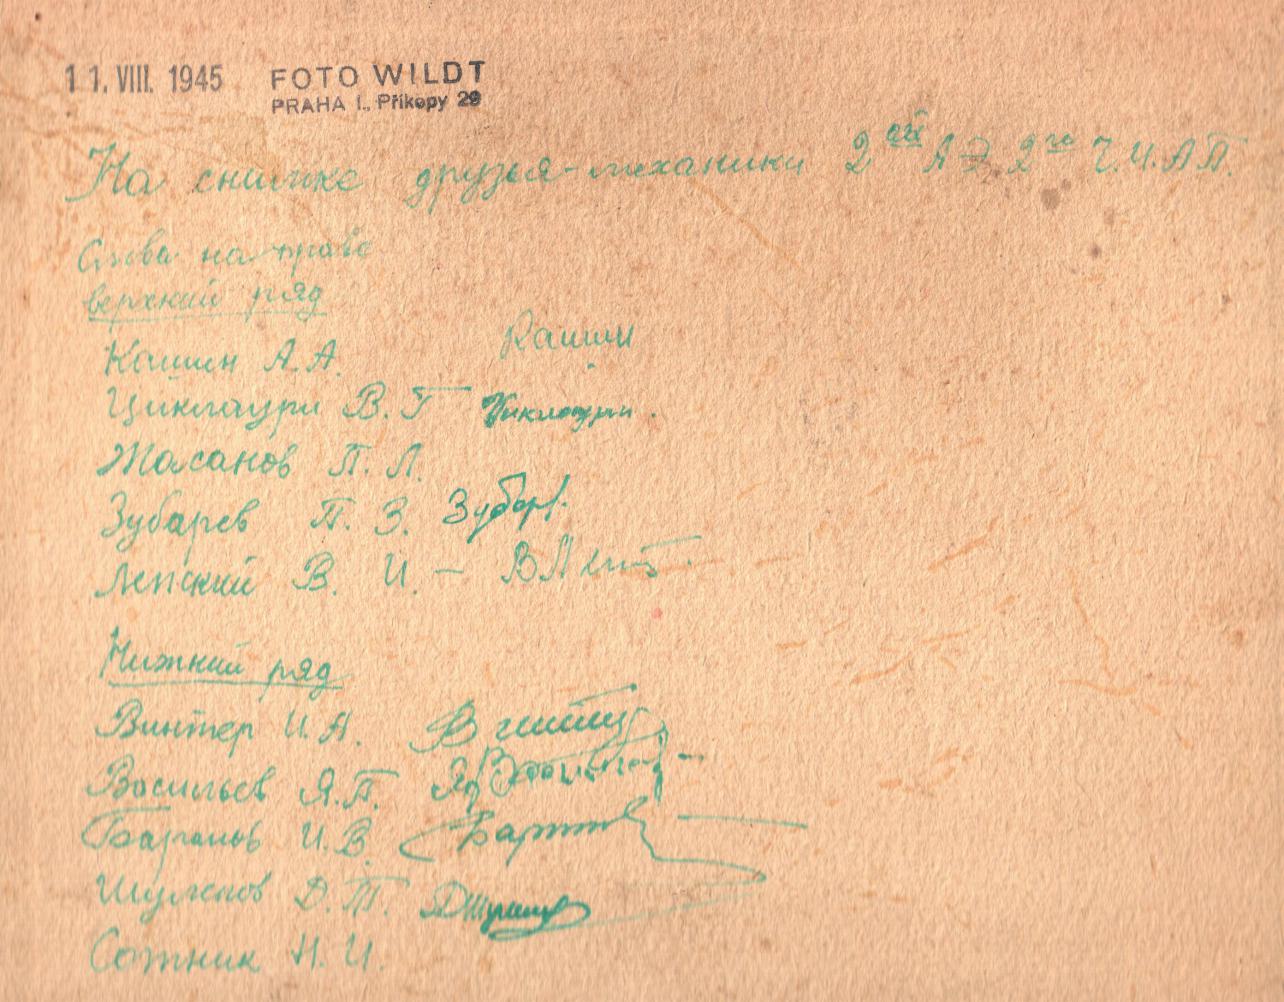 11. VIII. 1945 FOTO WILDT
PRAHA I., Příkopy 29
На снимке друзья-механики 2ой АЭ 2го Г.И.А.П.
Слева на право
верхний ряд
Кашин А.А. Кашин
Циклаури В.Г Циклаури.
Жасанов П.Л.
Зубарев П.З. Зубарев
Лепский В.И. –
Нижний ряд
Винтер И.А.
Васильев Я.П.
Баранов И.В.
Шулепов Д.Т.
Сотник Н.И.